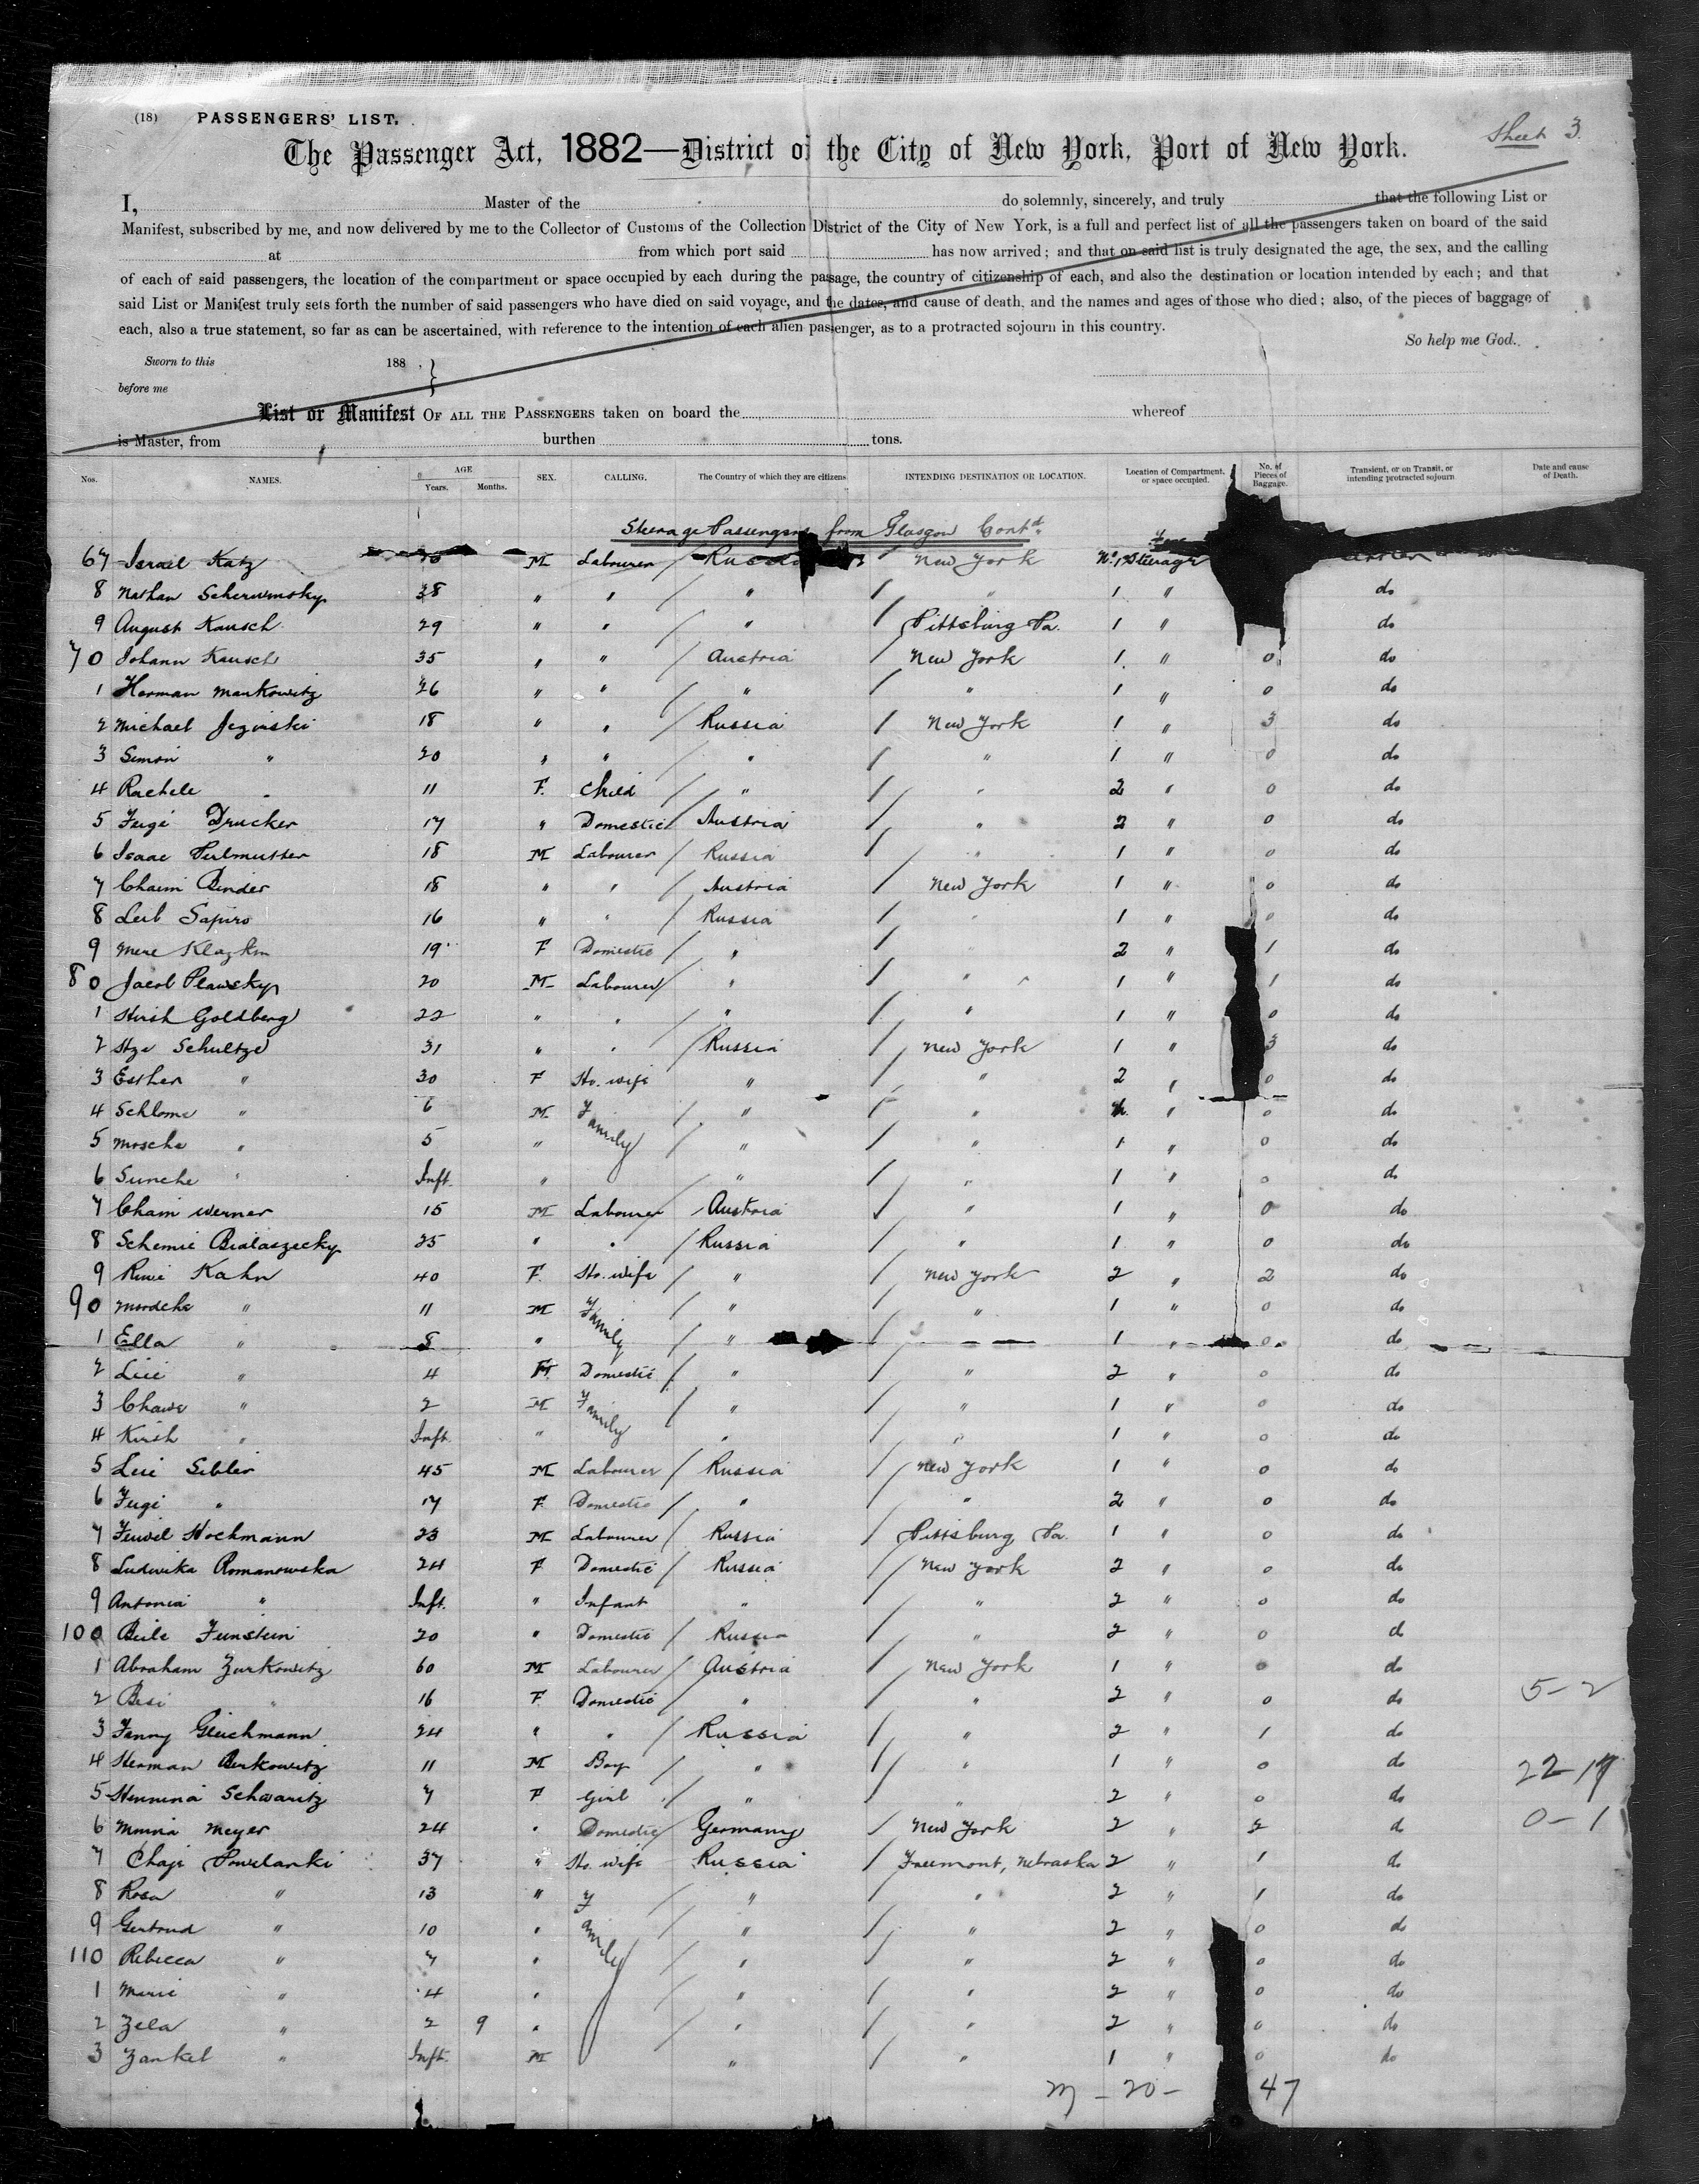 (18) PASSENGERS' LIST.
Sheet 3.
The Passenger Act, 1882—District of the City of New York, Port of New York.
I, Master of the do solemnly, sincerely, and truly that the following List or
Manifest, subscribed by me, and now delivered by me to the Collector of Customs of the Collection District of the City of New York, is a full and perfect list of all the passengers taken on board of the said
at from which port said has now arrived; and that on said list is truly designated the age, the sex, and the calling
of each of said passengers, the location of the compartment or space occupied by each during the passage, the country of citizenship of each, and also the destination or location intended by each; and that
said List or Manifest truly sets forth the number of said passengers who have died on said voyage, and the dates, and cause of death, and the names and ages of those who died; also, of the pieces of baggage of
each, also a true statement, so far as can be ascertained, with reference to the intention of each alien passenger, as to a protracted sojourn in this country.
So help me God.
Sworn to this 188 ,
before me
List or Manifest OF ALL THE PASSENGERS taken on board the whereof
is Master, from burthen tons.
Nos. NAMES. AGE Years. Months. SEX. CALLING. The Country of which they are citizens INTENDING DESTINATION OR LOCATION. Location of Compartment, or space occupied. No. of Pieces of Baggage. Transient, or on Transit, or intending protracted sojourn Date and cause of Death.
Steerage Passengers from Glasgow Contd.
67 Israel Katz M Labourer / Russia / New York No. 1 Steerage
8 Nathan 38 " " / " / " 1 " do
9 August Kausch 29 " " / " / Pittsburg Pa. 1 " do
70 Johann Kausch 35 " " / Austria / New York 1 " 0 do
1 Herman Markowitz 26 " " / " / " 1 " 0 do
2 Michael Jezinski 18 " " / Russia / New York 1 " 3 do
3 Simon " 20 " " / " / " 1 " 0 do
4 Rachele " 11 F. Child / " / " 2 " 0 do
5 Feige Drucker 17 " Domestic / Austria / " 2 " 0 do
6 Isaac Perlmutter 18 M Labourer / Russia / " 1 " 0 do
7 Chaim Binder 18 " " / Austria / New York 1 " 0 do
8 Leib Sapiro 16 " " / Russia / " 1 " 0 do
9 Mere Klazkin 19 F Domestic / " / " 2 " 1 do
80 Jacob Plawsky 20 M Labourer / " / " 1 " 1 do
1 Hirsh Goldberg 22 " " / " / " 1 " 0 do
2 Schultze 31 " " / Russia / New York 1 " 3 do
3 Esther " 30 F Ho. wife " / " 2 " 0 do
4 Schlome " 6 M Family / " / " " 0 do
5 Mosche " 5 " / " / " 1 " 0 do
6 Sunche " Inft. " " / " 1 " 0 do
7 Chaim Werner 15 M Labourer / Austria / " 1 " 0 do
8 Schemie Bialaszecky 25 " " / Russia / " 1 " 0 do
9 Kahn 40 F. Ho. wife / " / New York 2 " 2 do
90 Mordche " 11 M Family / " / " 1 " 0 do
1 Ella " 8 " / " / 1 " 0 do
2 " 4 F. Domestic / " / " 2 " 0 do
3 Chawe " 2 M Family / " / " 1 " 0 do
4 Kirsh " Inft. " " / " 1 " 0 do
5 45 M Labourer / Russia / New York 1 " 0 do
6 Feigi " 17 F. Domestic / " / " 2 " 0 do
7 Feiwel Hochmann 23 M Labourer / Russia / Pittsburg Pa. 1 " 0 do
8 Ludwika Romanowska 24 F Domestic / Russia / New York 2 " 0 do
9 Antonia " Inft. " Infant " / " 2 " 0 do
100 Beile Feinstein 20 " Domestic / Russia / " 2 " 0 d
1 Abraham Zurkowitz 60 M Labourer / Austria / New York 1 " 0 do
2 Besi " 16 F. Domestic " / " 2 " 0 do 5-2
3 Fanny Gleichmann 24 " " / Russia / " 2 " 1 do
4 Herman Berkowitz 11 M Boy / " / " 1 " 0 do 22 17
5 Hermina Schwaritz 7 F Girl / " / " 2 " 0 do
6 Minna Meyer 24 " Domestic / Germany / New York 2 " 2 do 0-1
7 Chaje Powelanki 37 " Ho. wife Russia / Freemont, Nebraska 2 " 1 do
8 Rosa " 13 " Family / " / " 2 " 1 do
9 Gertrud " 10 " / " / " 2 " 0 do
110 Rebecca " 7 " / " / " 2 " 0 do
1 Marie " 4 " / " / " 2 " 0 do
2 Zela " 2 9 " / " / " 2 " 0 do
3 Zankel " Inft. M " / " 1 " 0 do
- 20 - 47